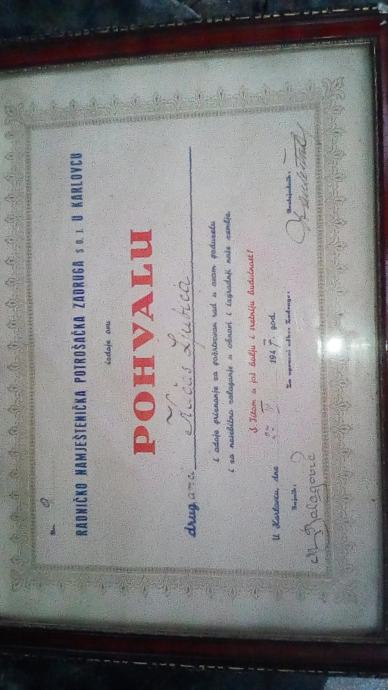 Br. 9
RADNIČKO NAMJEŠTENIČKA POTROŠAČKA ZADRUGA S O. J. U KARLOVCU
izdaje ovu
POHVALU
drugarici Ljubica
i odaje priznanje za požrtvovan rad u ovom poduzeću
i za nesebično zalaganje u obnovi i izgradnji naše zemlje.
S Titom u još bolju i sretniju budućnost!
U Karlovcu dne 1947. god.
Za upravni odbor Zadruge:
Tajnik: Predsjednik:
M Balagović